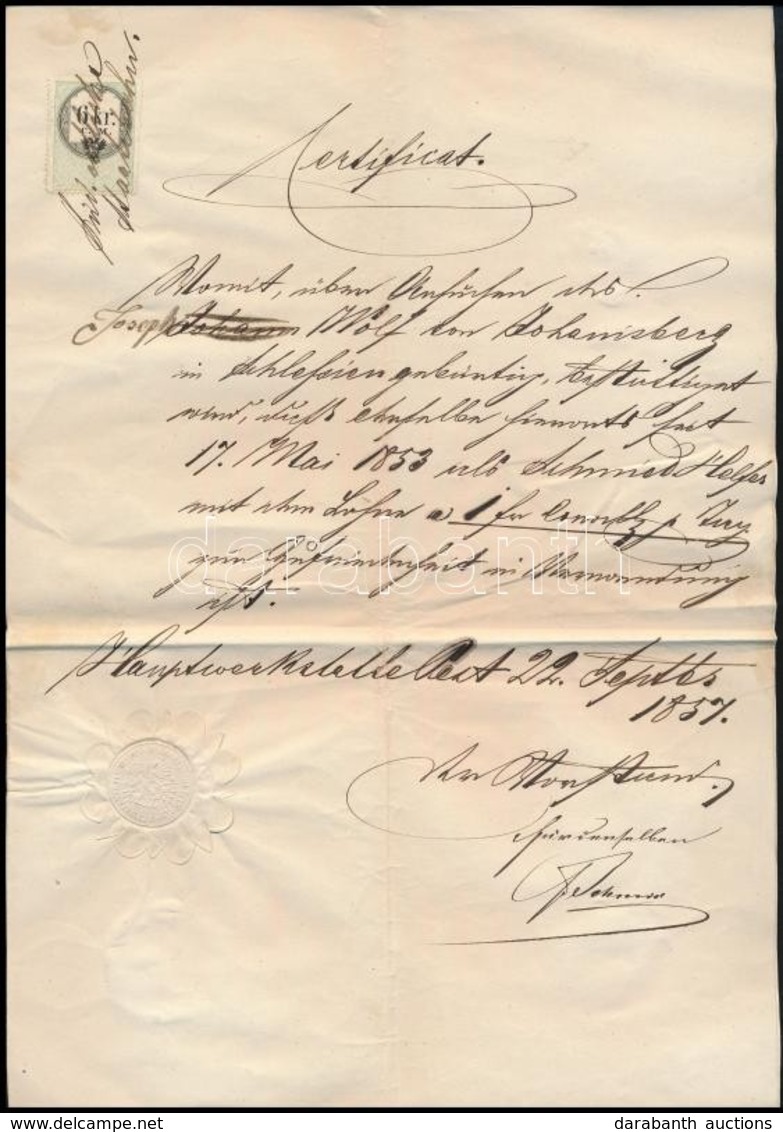 6 kr.
Certificat.
Womit, über Ansuchen des
Joseph Johann Wolf von Johannisberg
in Schlesien gebürtig, bestättiget
wird, daß derselbe hierorts seit
17. Mai 1853 als Schmied Helfer
mit dem Lohne a 1 fr p. Tag
zur Zufriedenheit in Verwendung
ist.
Hauptwerkstette Pest 22. Septbs
1857.
Der Vorstand.
für denselben
darabanth
darabanth auctions